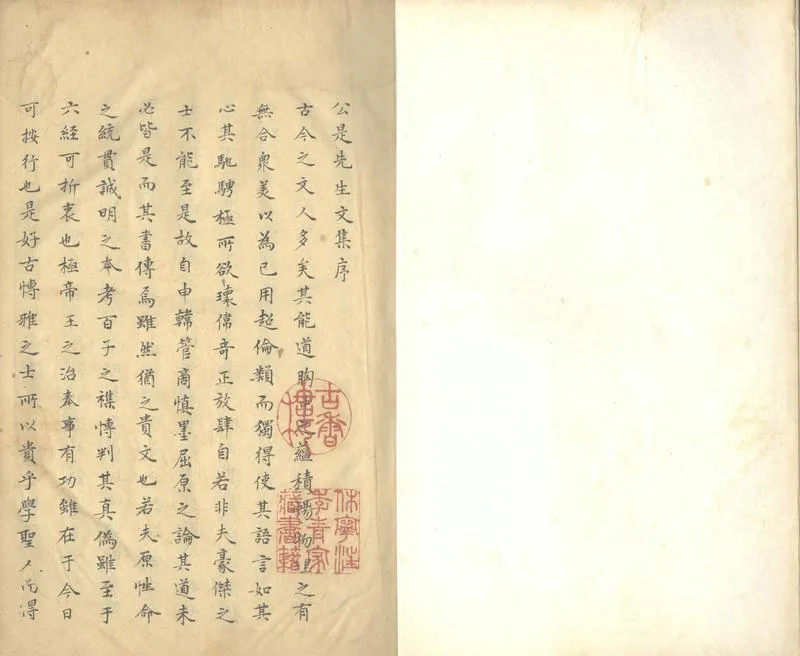 公是先生文集序
古今之文人多矣其能道胸中之蘊積暢物理之有
無合衆美以為已用超倫類而獨得使其語言如其
心其馳騁極所欲瓌偉奇正放肆自若非夫豪傑之
士不能至是故自申韓管商慎墨屈原之論其道未
必皆是而其書傳焉雖然猶之貴文也若夫原性命
之統貫誠明之本考百子之襍愽判其真偽雖至于
六經可折衷也極帝王之治奉事有功雖在于今日
可按行也是好古愽雅之士所以貴乎學聖人而得
古香樓
休寧汪
季青家
藏書籍